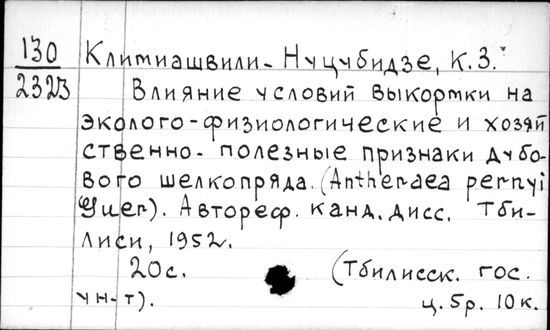 130 Климиашвили-Нуцубидзе, К.З.
2323 Влияние условий выкормки на
эколого-физиологические и хозяй
ственно-полезные признаки дубо-
вого шелкопряда. (Antheraea pernyi
Guer). Автореф. канд. дисс. Тби-
лиси, 1952.
20с. (Тбилисск. гос.
ун-т). ц. 5р. 10к.